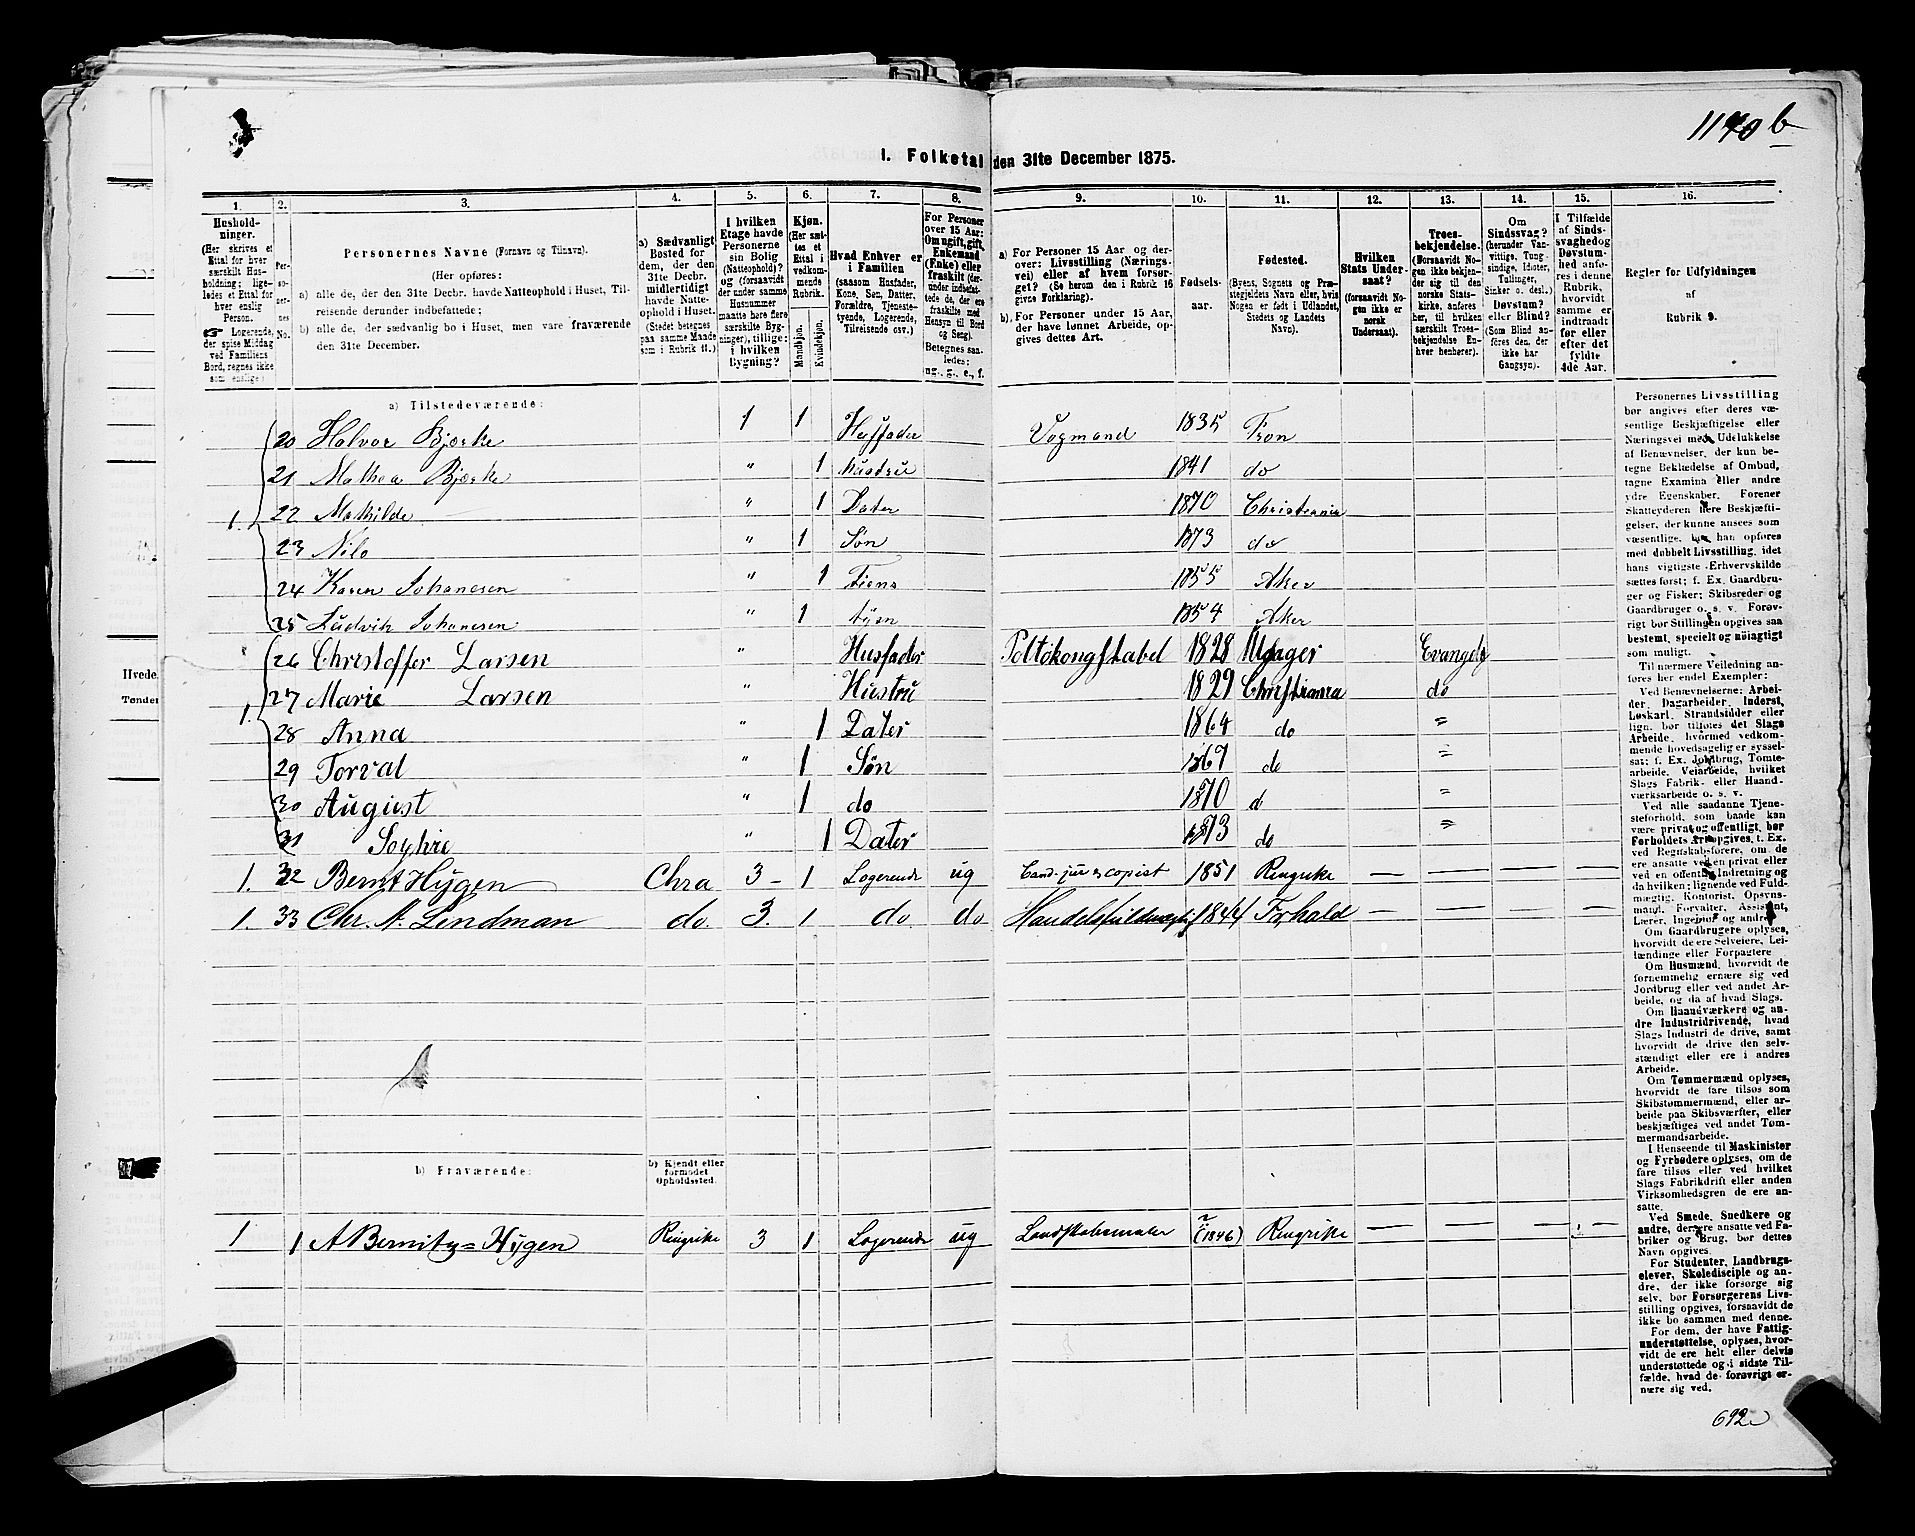 1170 b
I. Folketal den 31te December 1875.
1. 2. 3. 4. 5. 6. 7. 8. 9. 10. 11. 12. 13. 14. 15. 16.
Husholdninger.
(Her skrives et Ettal for hver særskilt Husholdning; ligeledes et Ettal for hver enslig Person.
Logerende, der spise Middag ved Familiens Bord, regnes ikke som enslige.)
Personernes No.
Personernes Navne (Fornavn og Tilnavn).
(Her opføres:
a) alle de, der den 31te Decbr. havde Natteophold i Huset, Tilreisende derunder indbefattede;
b) alle de, der sædvanlig bo i Huset, men vare fraværende den 31te December.
a) Sædvanligt Bosted for dem, der den 31te Decbr. midlertidigt havde Natteophold i Huset.
(Stedet betegnes paa samme Maade som i Rubrik 11.)
I hvilken Etage havde Personerne sin Bolig (Natteophold)?
(forsaavidt der under samme Husnummer maatte høre flere særskilte Bygninger), tillige: i hvilken Bygning?
Kjøn.
(Her sættes et Ettal i vedkommende Rubrik.
Mandkjøn.
Kvindekjøn.
Hvad Enhver er i Familien
(saasom Husfader, Kone, Søn, Datter, Forældre, Tjenestetyende, Logerende, Tilreisende osv.)
For Personer over 15 Aar: Om ugift, gift, Enkemand (Enke) eller fraskilt
Betegnes saaledes: ug., g., e., f.
a) For Personer 15 Aar og derover: Livsstilling (Næringsvei) eller af hvem forsørget? (Se herom den i Rubrik 16 givne Forklaring).
b) For Personer under 15 Aar, der have lønnet Arbeide, opgives dettes Art.
Fødselsaar.
Fødested.
(Byens, Sognets og Præstegjeldets Navn eller, hvis Nogen er født i Udlandet, Stedets og Landets Navn).
Hvilken Stats Undersaat?
(forsaavidt Nogen ikke er norsk Undersaat).
Troesbekjendelse.
(Forsaavidt Nogen ikke bekjender sig til den norske Statskirke, anføres her, til hvilken særskilt Troesbekjendelse Enhver henhører).
Om Sindssvag?
(herunder Vanvittige, Tungsindige, Idioter, Tullinger, Sinker o. desl.)
Døvstum? eller Blind?
(Som Blind anføres den, der ikke har Gangsyn).
I Tilfælde af Sindssvaghed og Døvstumhed anføres i denne Rubrik, hvorvidt samme er indtraadt før eller efter det fyldte 4de Aar.
Regler for Udfyldningen af Rubrik 9.
a) Tilstedeværende:
20 Halvor Bjerke 1 1 Husfader Vogmand 1835 Fron
21 Mathea Bjerke " 1 Hustru 1841 do
1. 22 Mathilde " 1 Dater 1870 Christiania
23 Nilo " 1 Søn 1873 do
24 Karen Johanesen " 1 Tiens 1855 Aker
25 Ludvik Johanesen " 1 1854 Aker
26 Christoffer Larsen " Husfader Politikongstabel 1828 Evangelg
1. 27 Marie Larsen " Hustru 1829 Christiania do
28 Anna " 1 Dater 1864 do "
29 Torval " 1 Søn 1867 do "
30 August " 1 do 1870 do "
31 Sophie " 1 Dater 1873 do "
1. 32 Bernt Hygen Chra 3 - 1 Logerende ug Cand. jur & copist 1851 Ringrike — — — —
1. 33 Chr. A. Lindman do. 3. 1 do. do Handelsfuldmægtig 1844 — — — —
Personernes Livsstilling bør angives efter deres væsentlige Beskjæftigelse eller Næringsvei med Udelukkelse af Benævnelser, der kun betegne Beklædelse af Ombud, tagne Examina eller andre ydre Egenskaber. Forener Skatteyderen flere Beskjæftigelser, der kunne ansees som væsentlige, bør han opføres med dobbelt Livsstilling, idet hans vigtigste Erhvervskilde sættes først; f. Ex. Gaardbruger og Fisker; Skibsreder og Gaardbruger o. s. v. Forøvrigt bør Stillingen opgives saa bestemt, specielt og nøiagtigt som muligt.
Til nærmere Veiledning anføres her endel Exempler:
Ved Benævnelserne: Arbeider, Dagarbeider, Inderst, Løskarl, Strandsidder eller lign. bør tilføies det Slags Arbeide, hvormed vedkommende hovedsagelig er sysselsat; f. Ex. Jordbrug, Tomtearbeide, Veiarbeide, hvilket Slags Fabrik- eller Haandværksarbeide o. s. v.
Ved alle saadanne Tjenesteforhold, som baade kan være privat og offentligt, bør Forholdets Art opgives, t. Ex. ved Regnskabsførere, om de ere ansatte ved en privat eller ved en offentlig Indretning og da hvilken; lignende ved Fuldmægtig, Kontorist, Opsynsmand, Forvalter, Assistent, Lærer, Ingeniør og andre.
Om Gaardbrugere oplyses, hvorvidt de ere Selveiere, Leilændinge eller Forpagtere
Om Husmænd, hvorvidt de fornemmelig ernære sig ved Jordbrug eller ved andet Arbeide, og da af hvad Slags.
Om Haandværkere og andre Industridrivende, hvad Slags Industri de drive, samt hvorvidt de drive den selvstændigt eller ere i andres Arbeide.
Om Tømmermænd oplyses, hvorvidt de fare tilsøs som Skibstømmermænd, eller arbeide paa Skibsværfter, eller beskjæftiges ved andet Tømmermandsarbeide.
I Henseende til Maskinister og Fyrbødere oplyses, om de fare tilsøs eller ved hvilket Slags Fabrikdrift eller anden Virksomhed de ere ansatte.
Ved Smede, Snedkere og andre, der ere ansatte ved Fabriker og Brug, bør dettes Navn opgives.
For Studenter, Landbrugselever, Skoledisciple og andre, der ikke forsørge sig selv, bør Forsørgerens Livsstilling opgives, forsaavidt de ikke bo sammen med denne.
For dem, der have Fattigunderstøttelse, oplyses, hvorvidt de ere helt eller delvis understøttede og i sidste Tilfælde, hvad de forøvrigt ernære sig ved.
b) Fraværende:
b) Kjendt eller formodet Opholdssted.
1 1 A Bernitz=Hygen Ringrike 3 1 Logerende ug Landskabsmaler (1846) Ringrike — — —
692
Hvede.
Tønder